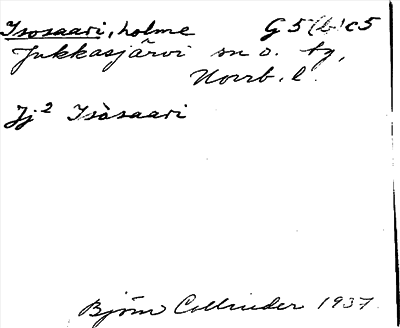 Isosaari, holme G 5 (b) c 5
Jukkasjärvi sn o. tg,
Norrb. l.
Jj² Isòsaari
Björn Collinder 1937.